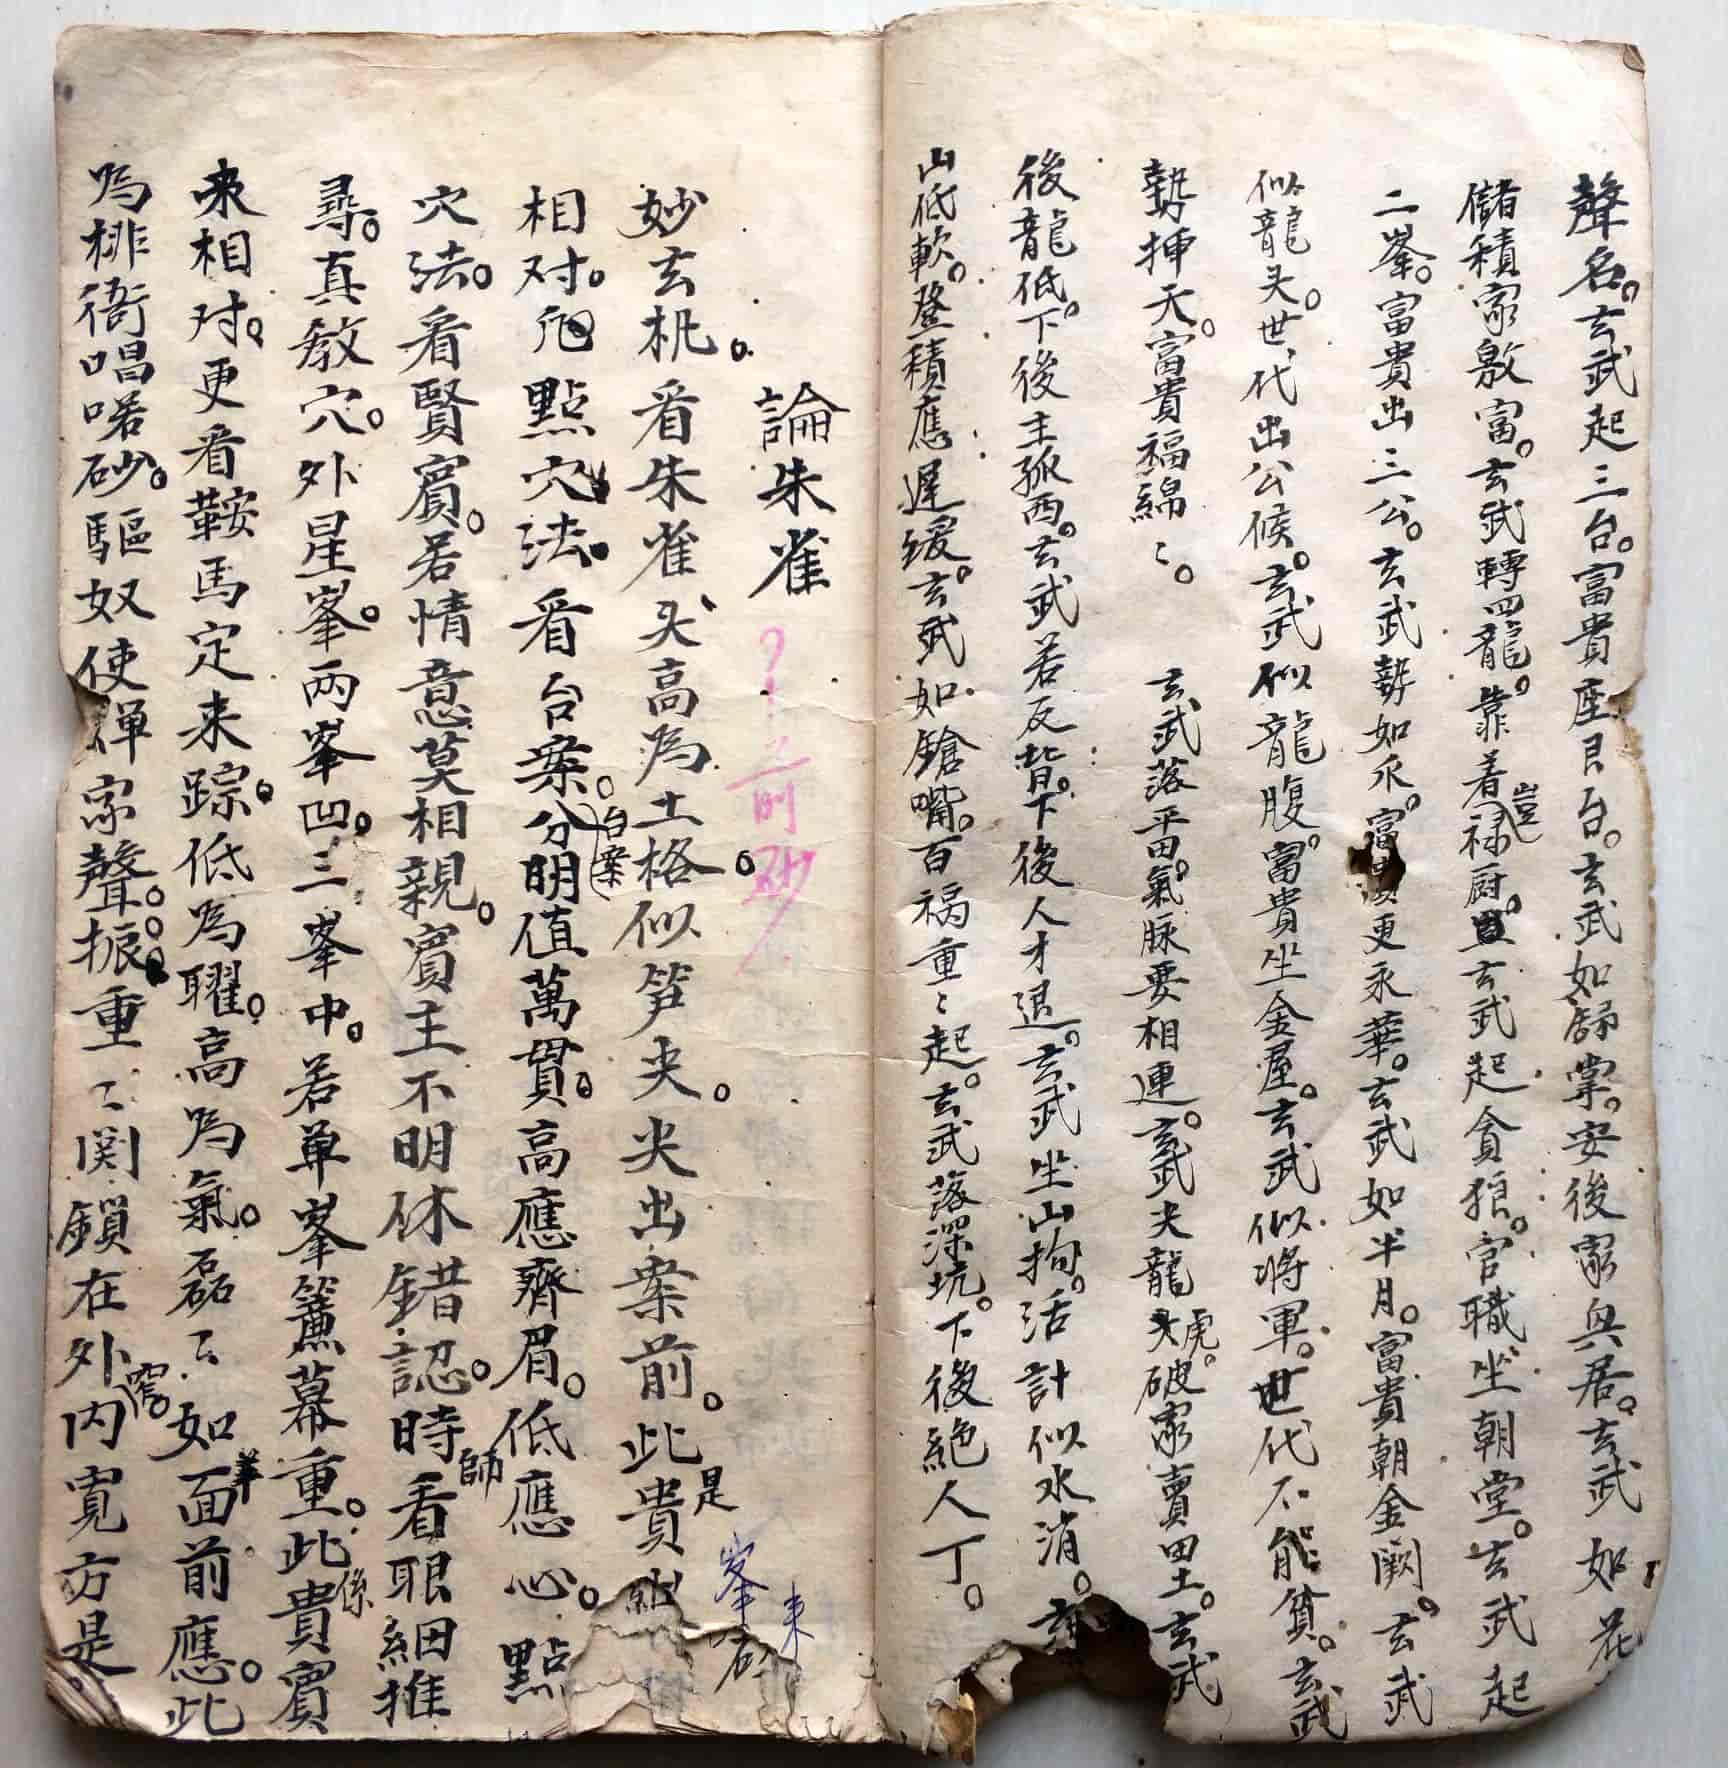 聲名。玄武起三台。富貴座良台。玄武如歸掌。安後家與居。玄武如花
儲積家敷富。玄武轉四龍。靠着祿厨。玄武起貪狼。官職坐朝堂。玄武起
豈
二峯。富貴出三公。玄武勢如爪。富貴更永華。玄武如半月。富貴朝金闕。玄武
似龍头。世代出公候。玄武似龍腹。富貴坐金屋。玄武似将軍。世代不能貧。玄武
勢挿天。富貴福綿〻。 玄武落平田。氣脉要相連。玄武尖龍虎。破家賣田土。玄武
後龍低。下後主孤西。玄武若反背。下後人才退。玄武坐山拘。活計似水消。
山低軟。登積應遲緩。玄武如鎗嘴。百禍重〻起。玄武落深坑。下後絕人丁。
論朱雀
?前砂
峯
来
妙玄机。看朱雀头高為土格。似笋尖。尖出案前。此貴
是
相对。凭點穴法。看台案。分明值萬貫。高應齊眉。低應心。點
台案
穴法。看賢賓。若情意莫相親。賓主不明休錯認。時看眼細推
師
尋。真教穴。外星峯。兩峯凹。三峯中。若单峯簾幕重。此貴賓
係
来相对。更看鞍馬定来踪。低為曜。高為氣。磊〻如面前應。此
羊
為排衙唱喏砂。驅奴使婢家聲。振重〻関鎖在外内寬方是
窄